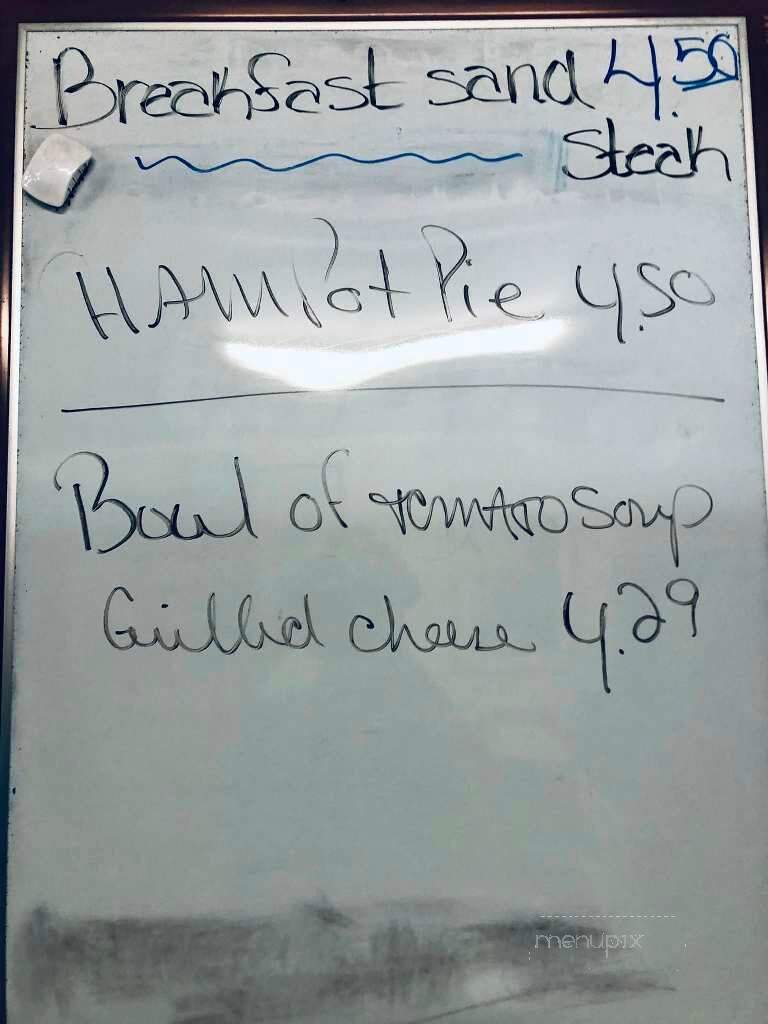 Breakfast sand 4.50
Steak
HAM Pot Pie 4.50
Bowl of tomato soup
Grilled cheese 4.29
menupix